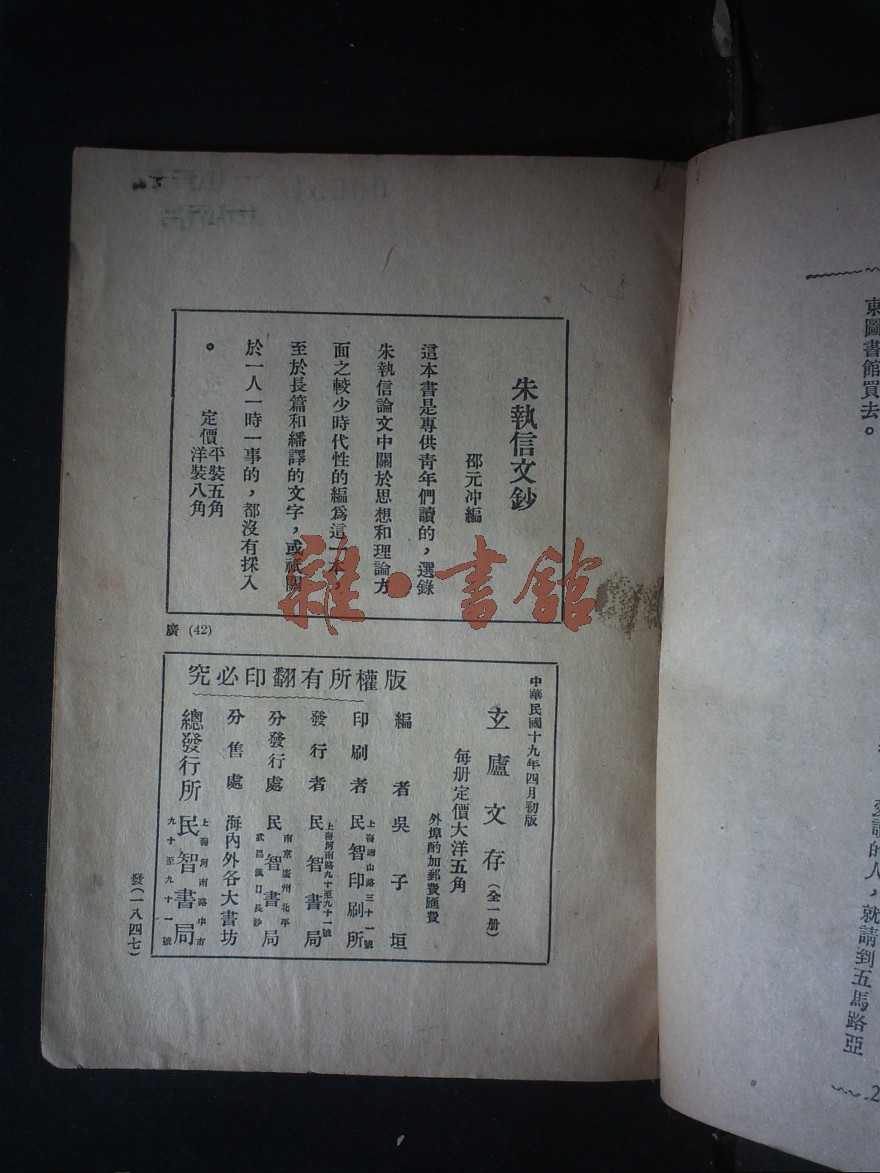 朱執信文鈔
邵元冲編
這本書是專供靑年們讀的，選錄
朱執信論文中關於思想和理論方
面之較少時代性的編爲這一本。
至於長篇和繙譯的文字，或祇關
於一人一時一事的，都沒有採入
。
定價平裝五角
洋裝八角
廣 (42)
雜·書館
中華民國十九年四月初版
玄廬文存（全一册）
每册定價大洋五角
外埠酌加郵費匯費
版權所有翻印必究
編者 吳子垣
印刷者 民智印刷所
發行者 上海河南路九十至九十一號 民智書局
分發行處 南京廣州北平 武昌漢口長沙 民智書局
分售處 海內外各大書坊
總發行所 上海河南路中市 九十至九十一號 民智書局
發（一八四七）
東圖書館買去。
的人，就請到五馬路亞